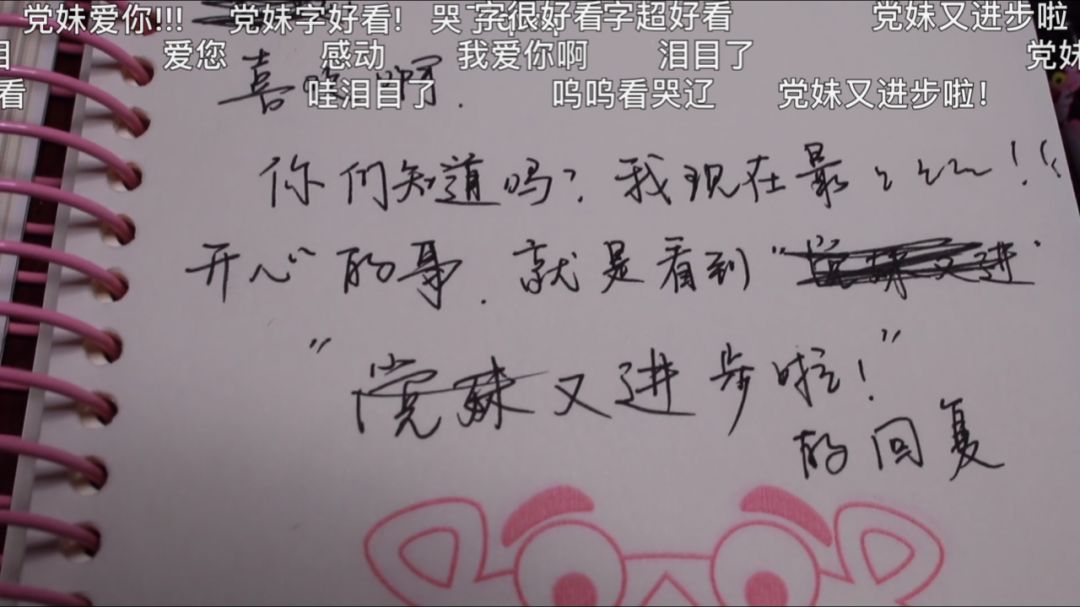 党妹爱你!!! 党妹字好看! 哭了 字很好看 字超好看 党妹又进步啦
泪目 爱您 感动 我爱你啊 泪目了 党妹
看 哇泪目了 呜呜看哭辽 党妹又进步啦!
喜 啊.
你们知道吗? 我现在最
开心的事. 就是看到 "党妹又进"
"党妹又进步啦!"
的回复